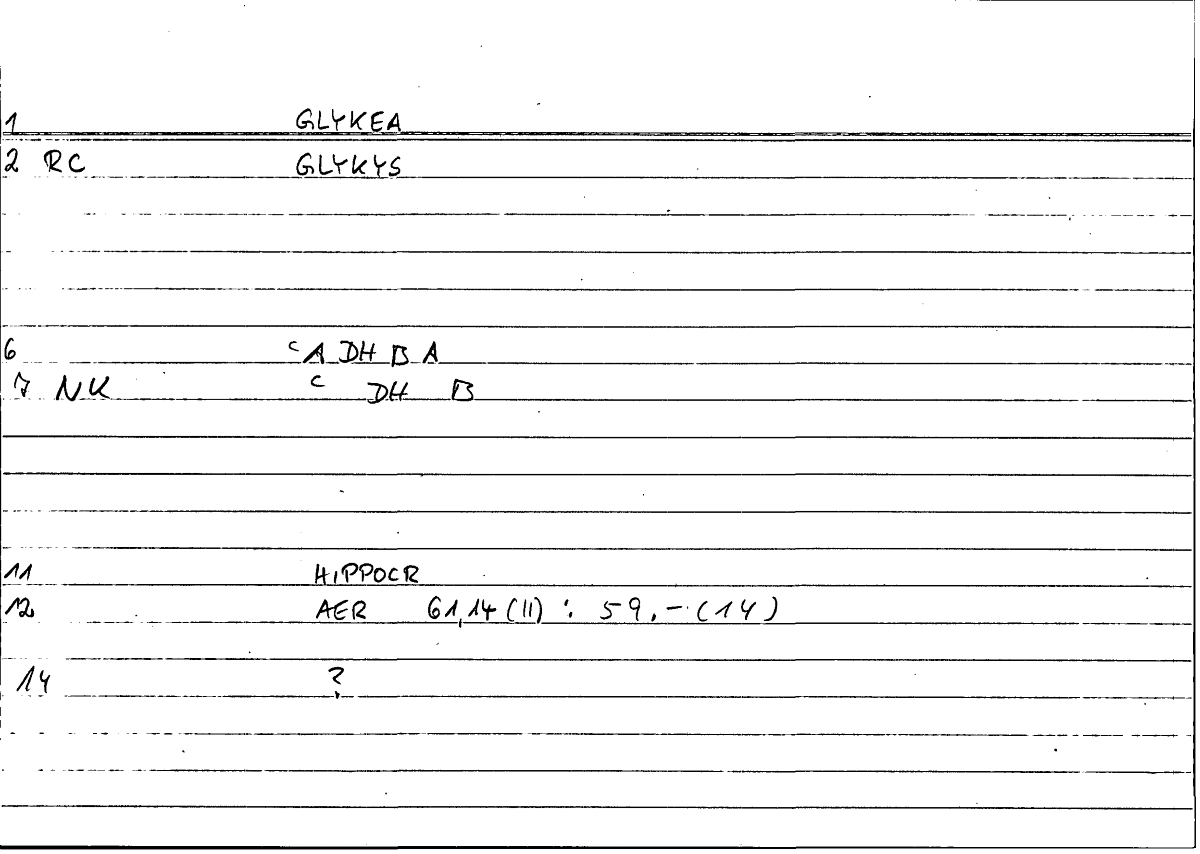 1 GLYKEA
2 RC GLYKYS
6 c A DH B A
7 NK c DH B
11 HIPPOCR
12 AER 61,14 (II) : 59,- (14)
14 ?